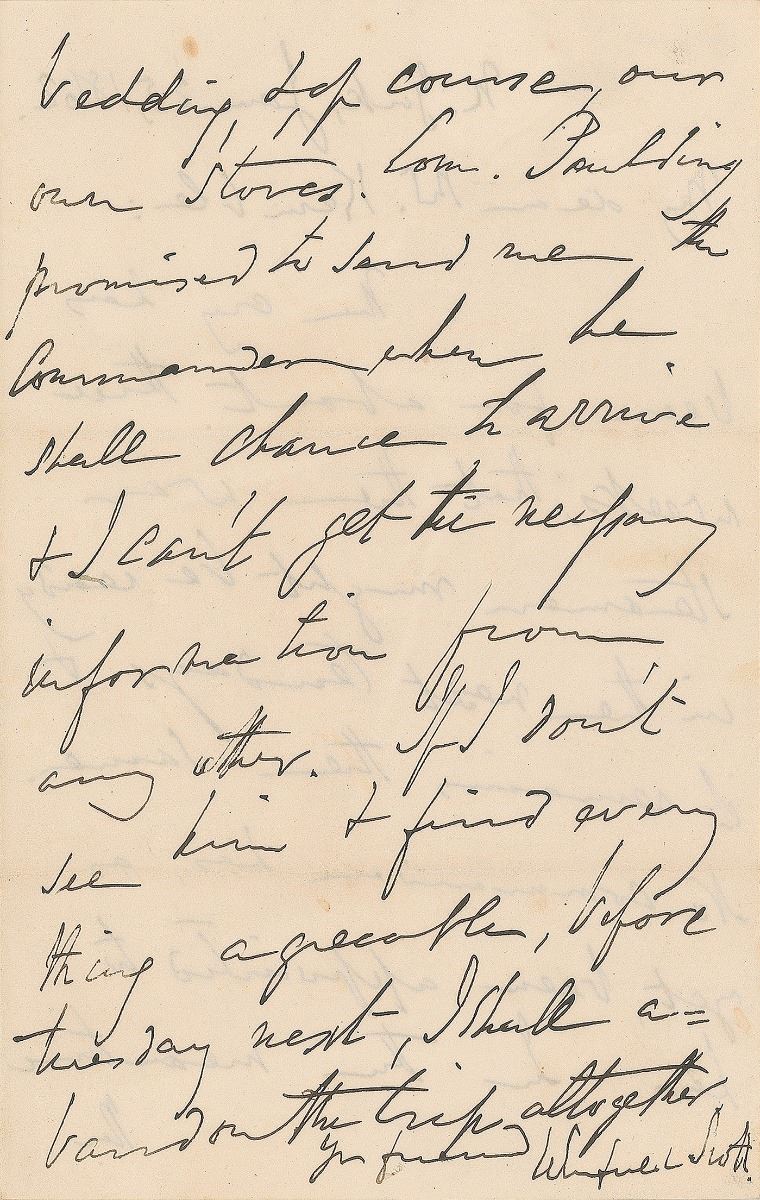 bedding, & of course, our
own stores. Com. Paulding
promised to send me the
Commander when he
shall chance to arrive
& I can't get the necessary
information from
any other. If I don't
see him & find every
thing agreeable, before
tuesday next, I shall a=
bandon the trip altogether
Yr friend Winfield Scott.